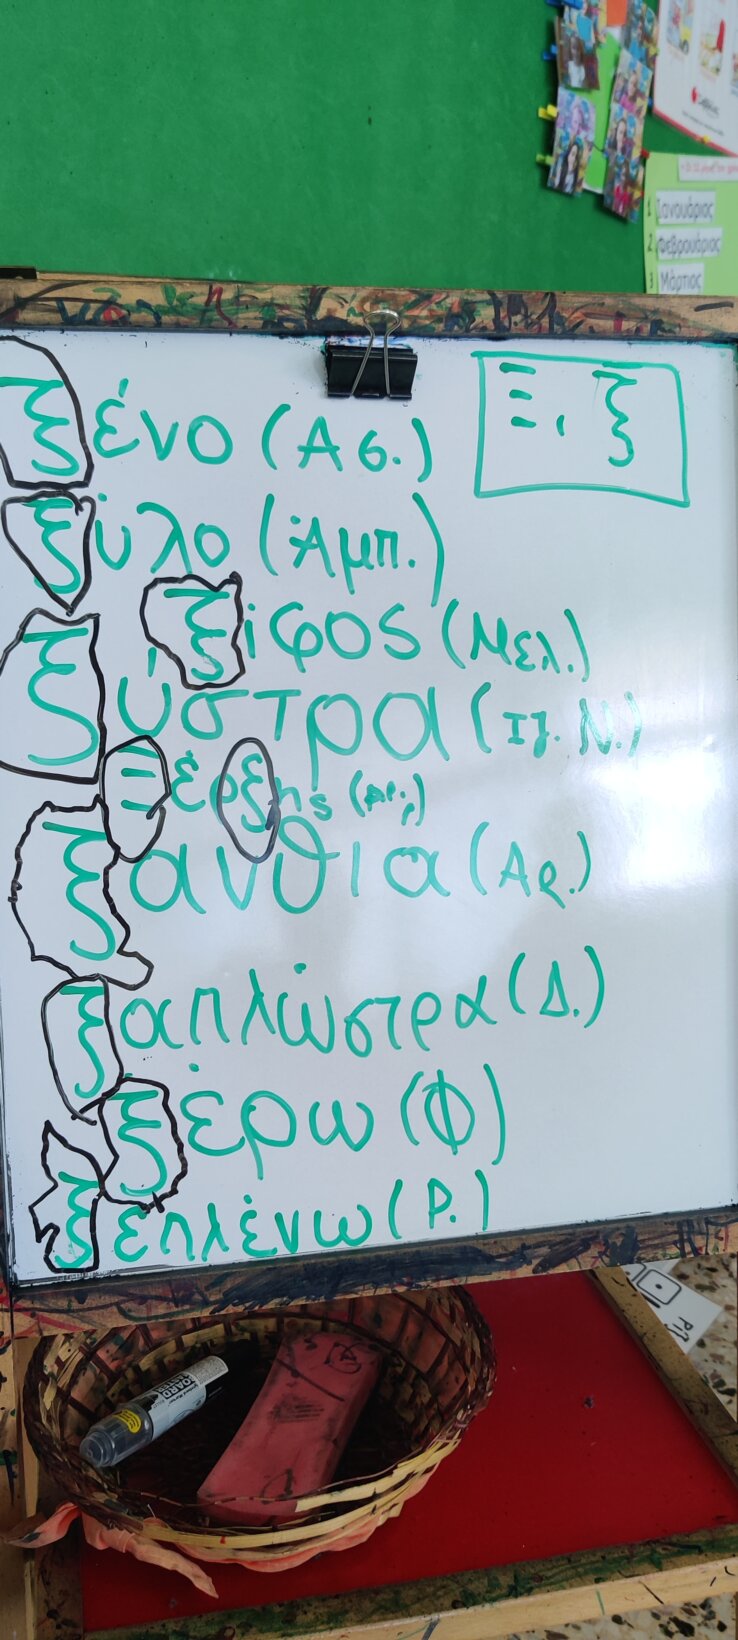 Ιανουάριος
2 Φεβρουάριος
3 Μάρτιος
Ξ, ξ
ξένο (Ας.)
ξύλο (Άμπ.)
ξίφος (Μελ.)
ξύστρα (Ιζ. Ν.)
Ξέρξης
ξανθιά (Αρ.)
ξαπλώστρα (Δ.)
ξέρω (Φ)
ξεπλένω (Ρ.)
BOARD